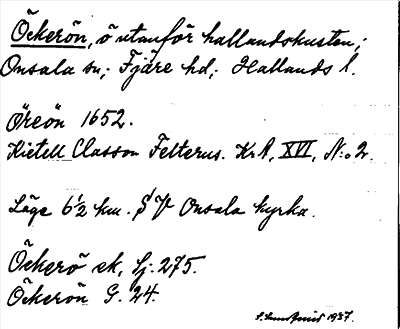 Öckerön, ö utanför hallandskusten;
Onsala sn; Fjäre hd; Hallands l.
Öreön 1652.
Kietell Classon Felterus. KrA, XVI, N:o 2.
Läge 6 1/2 km. S V Onsala kyrka.
Öckerö ek, bj. 275.
Öckerön G. 24.
1937.